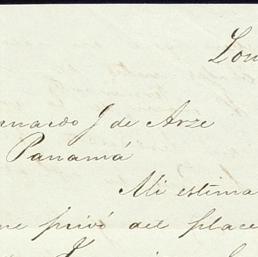 Lon
rnardo J de Arze
Panamá
Mi estima
me privó del place